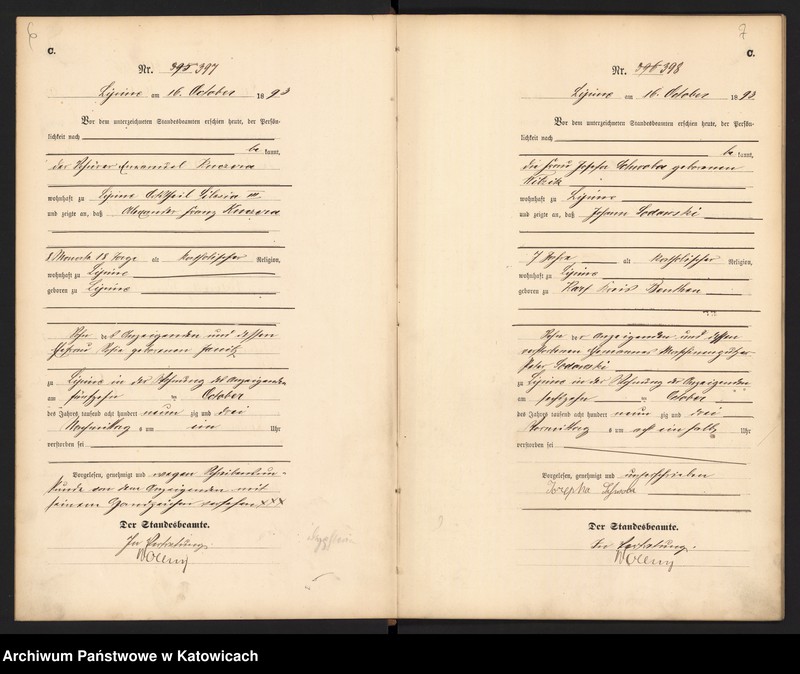 6
C.
Nr. 395 397
Lipine am 16. October 1893
Vor dem unterzeichneten Standesbeamten erschien heute, der Persön-
lichkeit nach
be kannt,
der Emanuel
wohnhaft zu Lipine Silesia
und zeigte an, daß Alexander Franz
8 Monate 18 Tage alt katholischer Religion,
wohnhaft zu Lipine
geboren zu Lipine
Sohn des Anzeigenden und dessen
Ehefrau geborenen
zu Lipine in der Wohnung des Anzeigenden
am fünfzehn ten October
des Jahres tausend acht hundert neun zig und drei
Nachmittag s um ein Uhr
verstorben sei
Vorgelesen, genehmigt und wegen Schreibensun-
kunde von dem Anzeigenden mit
seinem Handzeichen versehen XXX
Der Standesbeamte.
In Vertretung.
Wolleny
7
C.
Nr. 396 398
Lipine am 16. October 1893
Vor dem unterzeichneten Standesbeamten erschien heute, der Persön-
lichkeit nach
be kannt,
die Frau geborenen
wohnhaft zu Lipine
und zeigte an, daß Johann
7 Jahre alt katholischer Religion,
wohnhaft zu Lipine
geboren zu Karf Kreis Beuthen
Sohn der Anzeigenden und dessen
verstorbenen
Peter
zu Lipine in der Wohnung der Anzeigenden
am sechzehn ten October
des Jahres tausend acht hundert neun zig und drei
Vormittag s um acht einhalb Uhr
verstorben sei
Vorgelesen, genehmigt und unterschrieben
Der Standesbeamte.
In Vertretung.
Wolleny
Archiwum Państwowe w Katowicach